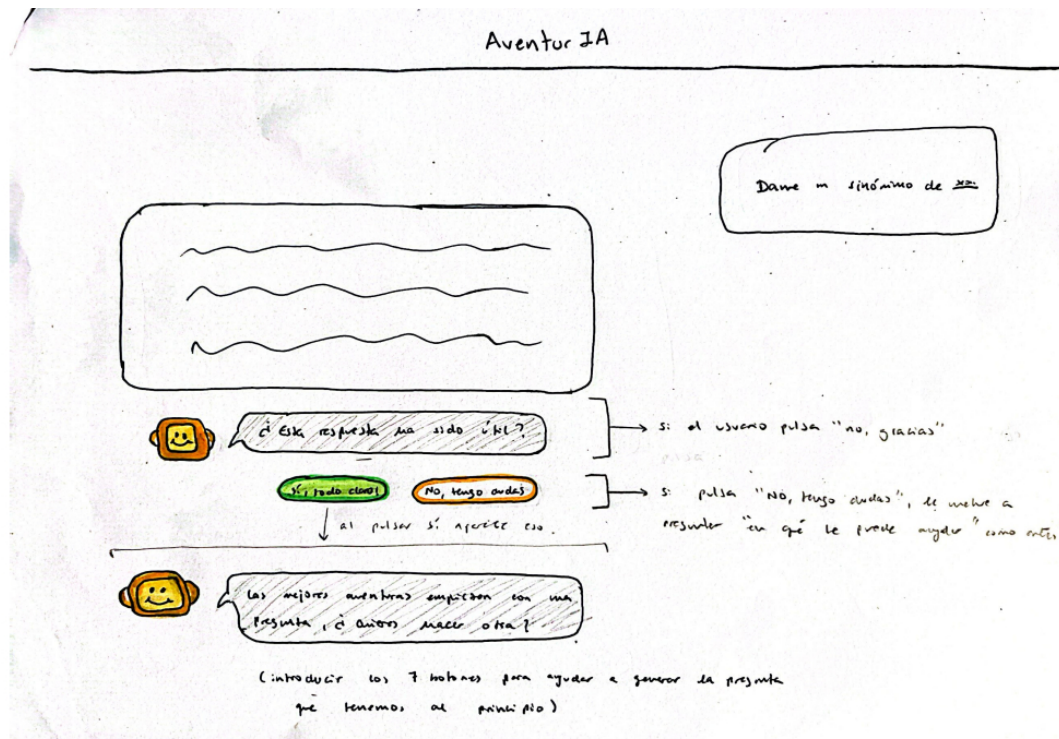 AventurIA
Dame un sinónimo de xxx.
¿Esta respuesta ha sido útil?
si el usuario pulsa "no, gracias"
Sí, todo claro!
No, tengo dudas
si pulsa "No, tengo dudas", le vuelve a
preguntar "en qué le puede ayudar" como antes
al pulsar sí aparece eso
Las mejores aventuras empiezan con una
pregunta, ¿Quieres hacer otra?
(introducir los 7 botones para ayudar a generar la pregunta
que tenemos al principio)